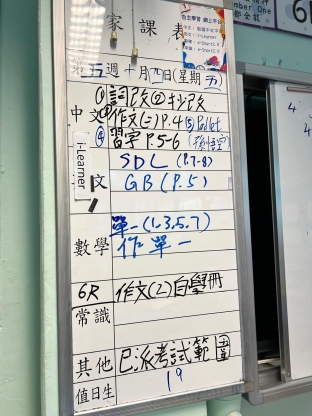 家課表
自主學習 網上平台
第五週十月四日(星期五)
中文
①詞改②抄改
③作文(二)P.4⑤Padlet
④習字P.5-6
i-Learner
文
SDL (P.7-8)
GB (P.5)
數學
單一(1,3,5,7)
作單一
6R
作文(2)自學冊
常識
其他
已派考試範圍
值日生
19
6